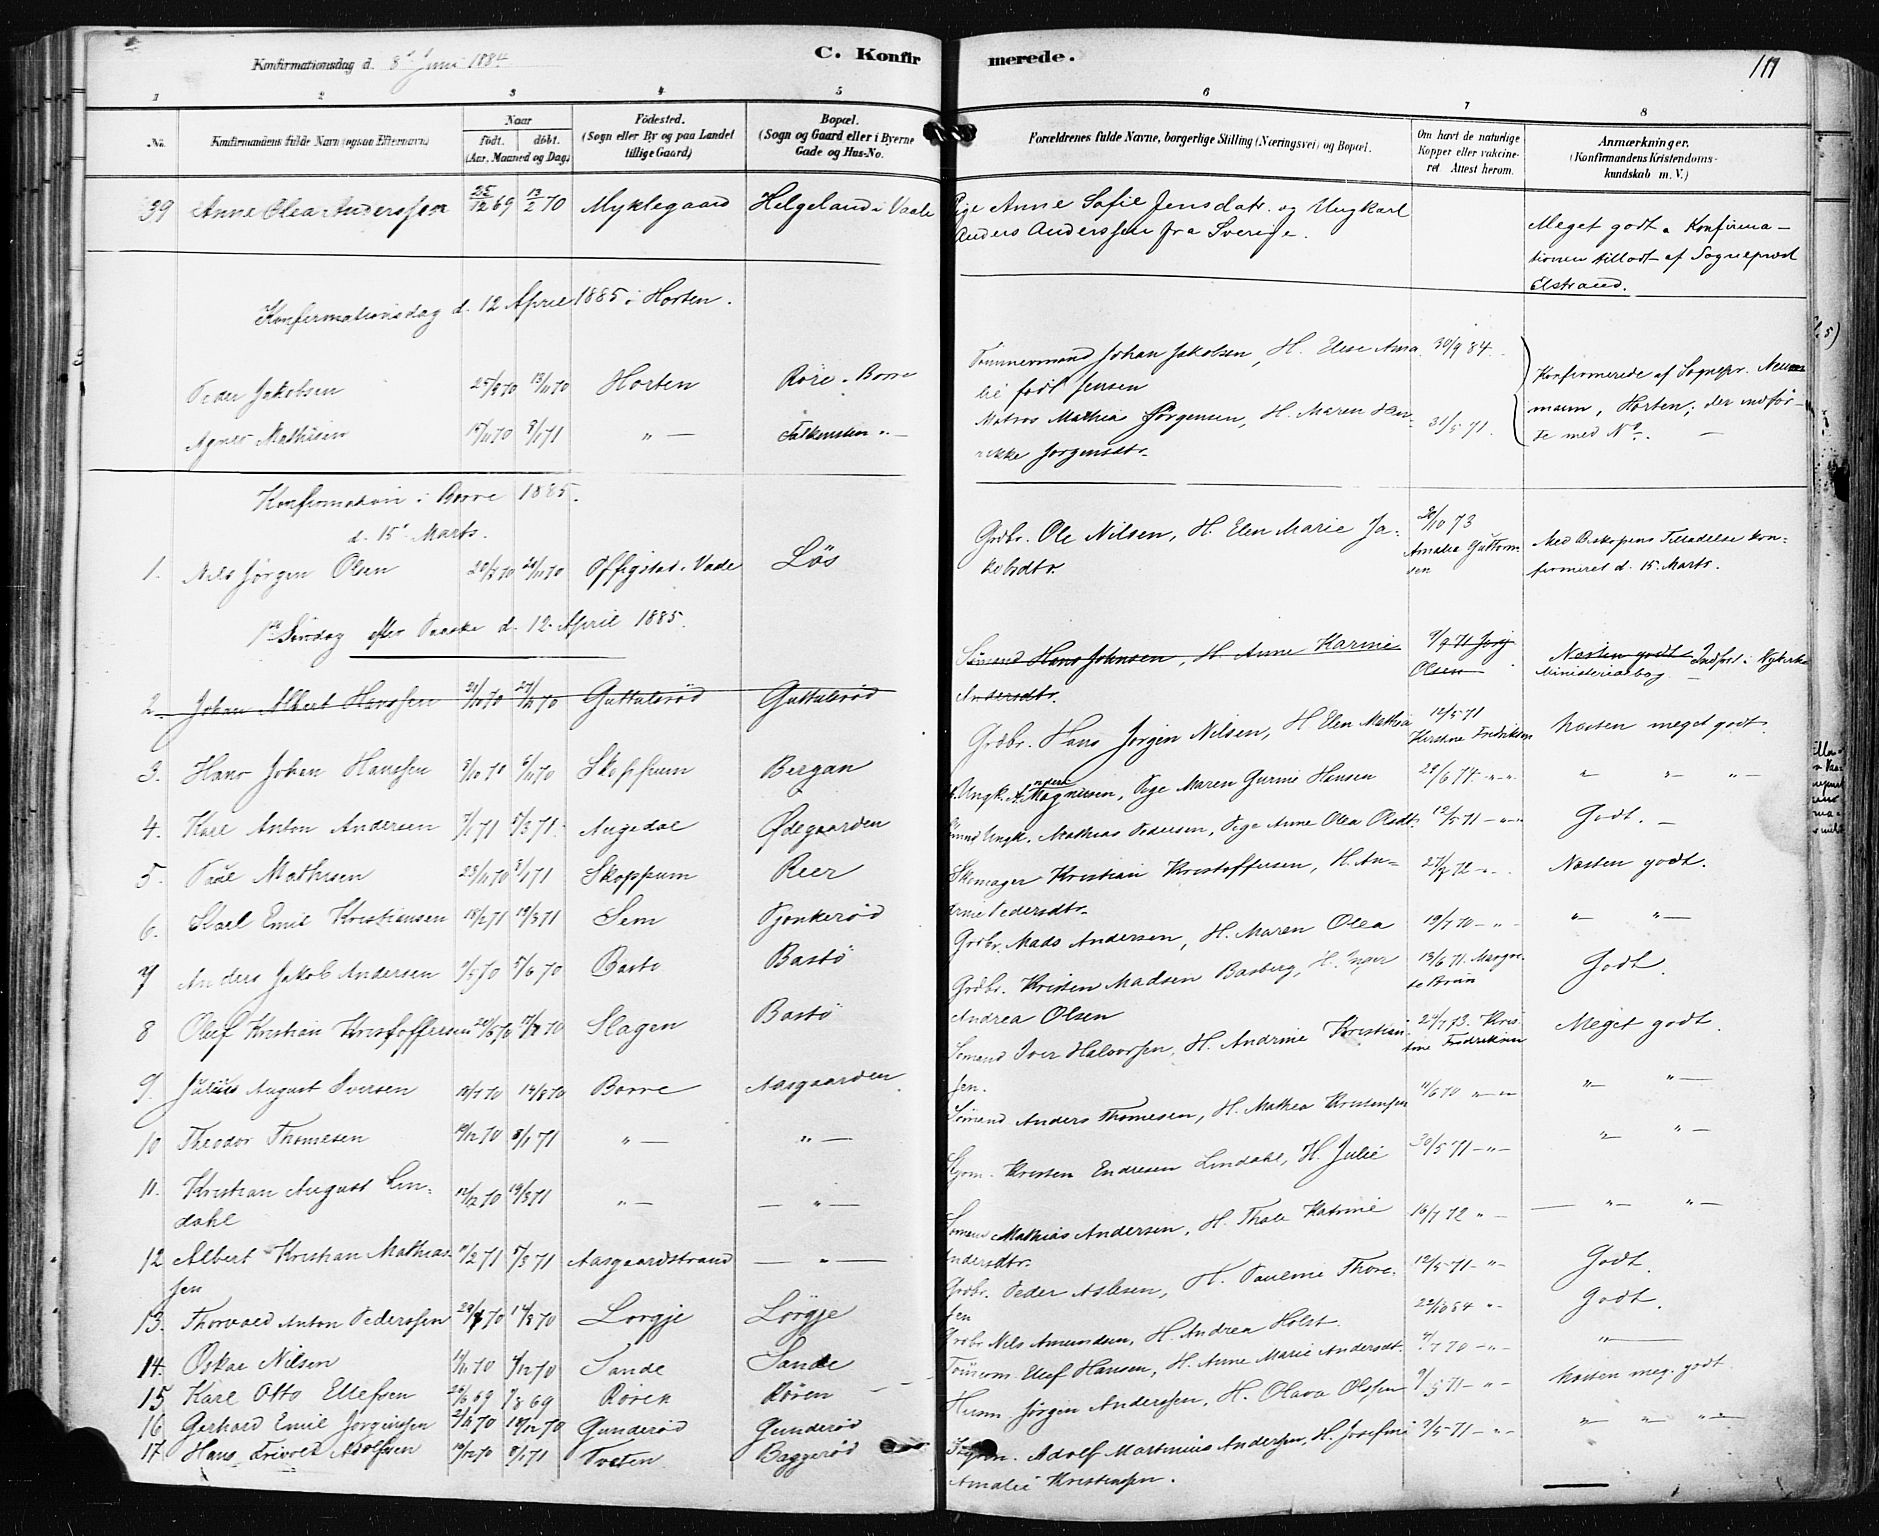 Konfirmationsdag d. 8de Juni 1884
C. Konfirmerede.
111
1 2 3 4 5 6 7 8
No. Konfirmandens fulde Navn (ogsaa Efternavn)
Naar født. døbt. (Aar, Maaned og Dag)
Födested. (Sogn eller By og paa Landet tillige Gaard)
Bopæl. (Sogn og Gaard eller i Byerne Gade og Hus-No.
Forældrenes fulde Navne, borgerlige Stilling (Næringsvei) og Bopæl.
Om havt de naturlige Kopper eller vakcineret. Attest herom.
Anmærkninger. (Konfirmandens Kristendomskundskab m. V.)
39 Anne Olea Anderssen 25/12 69 13/2 70 Myklegaard Helgeland i Vaale Pige Anne Sofie Jensdatr. og Ungkarl
Anders Anderssen fra Sverige.
Meget godt. Konfirma-
tionen tilladt af Sogneprest
Elstrand.
Konfirmationsdag d. 12 April 1885 i Horten.
Peder Jakobsen 25/9 70 13/11 70 Horten Røre i Borre Tømmermand Johan Jakobsen, H. Elise Ama- 30/9 84.
lie født Jensen
Agnes Mathisen 17/11 70 8/1 71 " — Falkensten " — Matros Mathia Jørgensen, H. Maren Hen- 31/5 71.
rikke Jørgensdtr.
Konfirmerede af Sognepr. Neu-
mann, Horten; der indfør-
te med No. —
Konfirmation i Borre 1885.
d. 15de Marts.
1. Nils Jørgen Olsen 20/5 70 20/11 70 Offigstad i Vaale Løs Grdbr. Ole Nilsen, H. Elen Marie Ja-
kobsdtr.
28/10 73 Amalia Guttorm-
sen
Med Biskopens Tilladelse kon-
firmeret d. 15. Marts.
1ste Søndag efter Paaske d. 12. April 1885.
2. Johan Albert Hanssen 21/10 70 27/12 70 Guttulsrød Guttulsrød Sømand Hans Johnsen, H. Anne Karine
Andersdtr.
9/9 71 Jørg
Olsen
Næsten godt. Indført i Nykirke
Ministerialbog
3. Hans Johan Hanssen 3/10 70 6/11 70 Skoppum Bergan Grdbr. Hans Jørgen Nilsen, H Elen Mathea 12/5 71
Kirstine Fredriksen Næsten meget godt.
4. Karl Anton Andersen 7/1 71 5/3 71. Augedal Ødegaarden Ungk. Anders Magnussen, Pige Maren Gurine Hansen 28/6 74 " " " " " —
5. Paul Mathisen 25/11 70 8/1 71 Skoppum Reer Ungk. Mathias Pedersen, Pige Anne Olea Olsdt. 12/5 71 — " — Godt. —
6. Karl Emil Kristiansen 18/2 71 19/3 71 Sem Fjonkerød Skomager Kristian Kristoffersen, H. An-
ne Pedersdtr. 27/7 72 — " Næsten godt.
7 Anders Jakob Andersen 7/5 70 5/6 70 Bastø Bastø Grdbr. Mads Andersen, H. Maren Olea 19/7 70 — " — " " —
8 Oluf Kristian Kristoffersen 20/5 70 17/7 70 Slagen Bastø Grdbr. Kristen Madsen Basberg, H. Inger
Andrea Olsen 13/6 71. Margre-
te Bruun Godt.
9. Julius August Iversen 12/7 70 14/8 70 Borre Aasgaarden Sømand Iver Halvorsen, H. Andrine Kristian-
sen. 24/7 73. Kris-
tine Fredriksen Meget godt.
10 Theodor Thomesen 19/12 70 8/1 71 " — " — Sømand Anders Thomesen, H. Mathea Kristensen 11/6 70 " — " " —
11. Kristian August Lin-
dahl 12/12 70 19/3 71 " — — " — Styrm. Kristen Endresen Lindahl, H. Julie 30/5 71 — " — " " —
12 Albert Kristian Mathias-
sen 11/2 71 5/3 71 Aasgaardstrand — " — Sømand Mathias Andersen, H. Thale Katrine
Andersdtr. 16/7 72 " — — " " —
13. Thorvald Anton Pederssen 29/7 70 14/8 70 Lørgje Lørgje Grdbr. Peder Aslesen, H. Pauline Thore-
sen 12/5 71 — " — Godt.
14. Oskar Nilsen 11/11 70 4/12 70 Sande Sande Grdbr Nils Amundsen, H. Andrea Holst. 22/10 84 " Godt.
15 Karl Otto Ellefsen 29/6 69 1/8 69 Røren Røren Tømrm. Ellef Hansen, H. Anne Marie Andersdt. 7/7 70 — " — " —
16 Gerhard Emil Jørgenssen 2/11 70 18/12 70 Gunderød Gunderød Husm. Jørgen Anderssen, H. Olava Olssen 9/5 71 — " — Næsten meg. godt
17. Hans Adolfsen 10/12 70 8/1 71 Tveten Baggerød Styrm. Adolf Martinius Andersen, H. Josefine
Amalie Kristenssen. 3/5 71 — " — " " " —